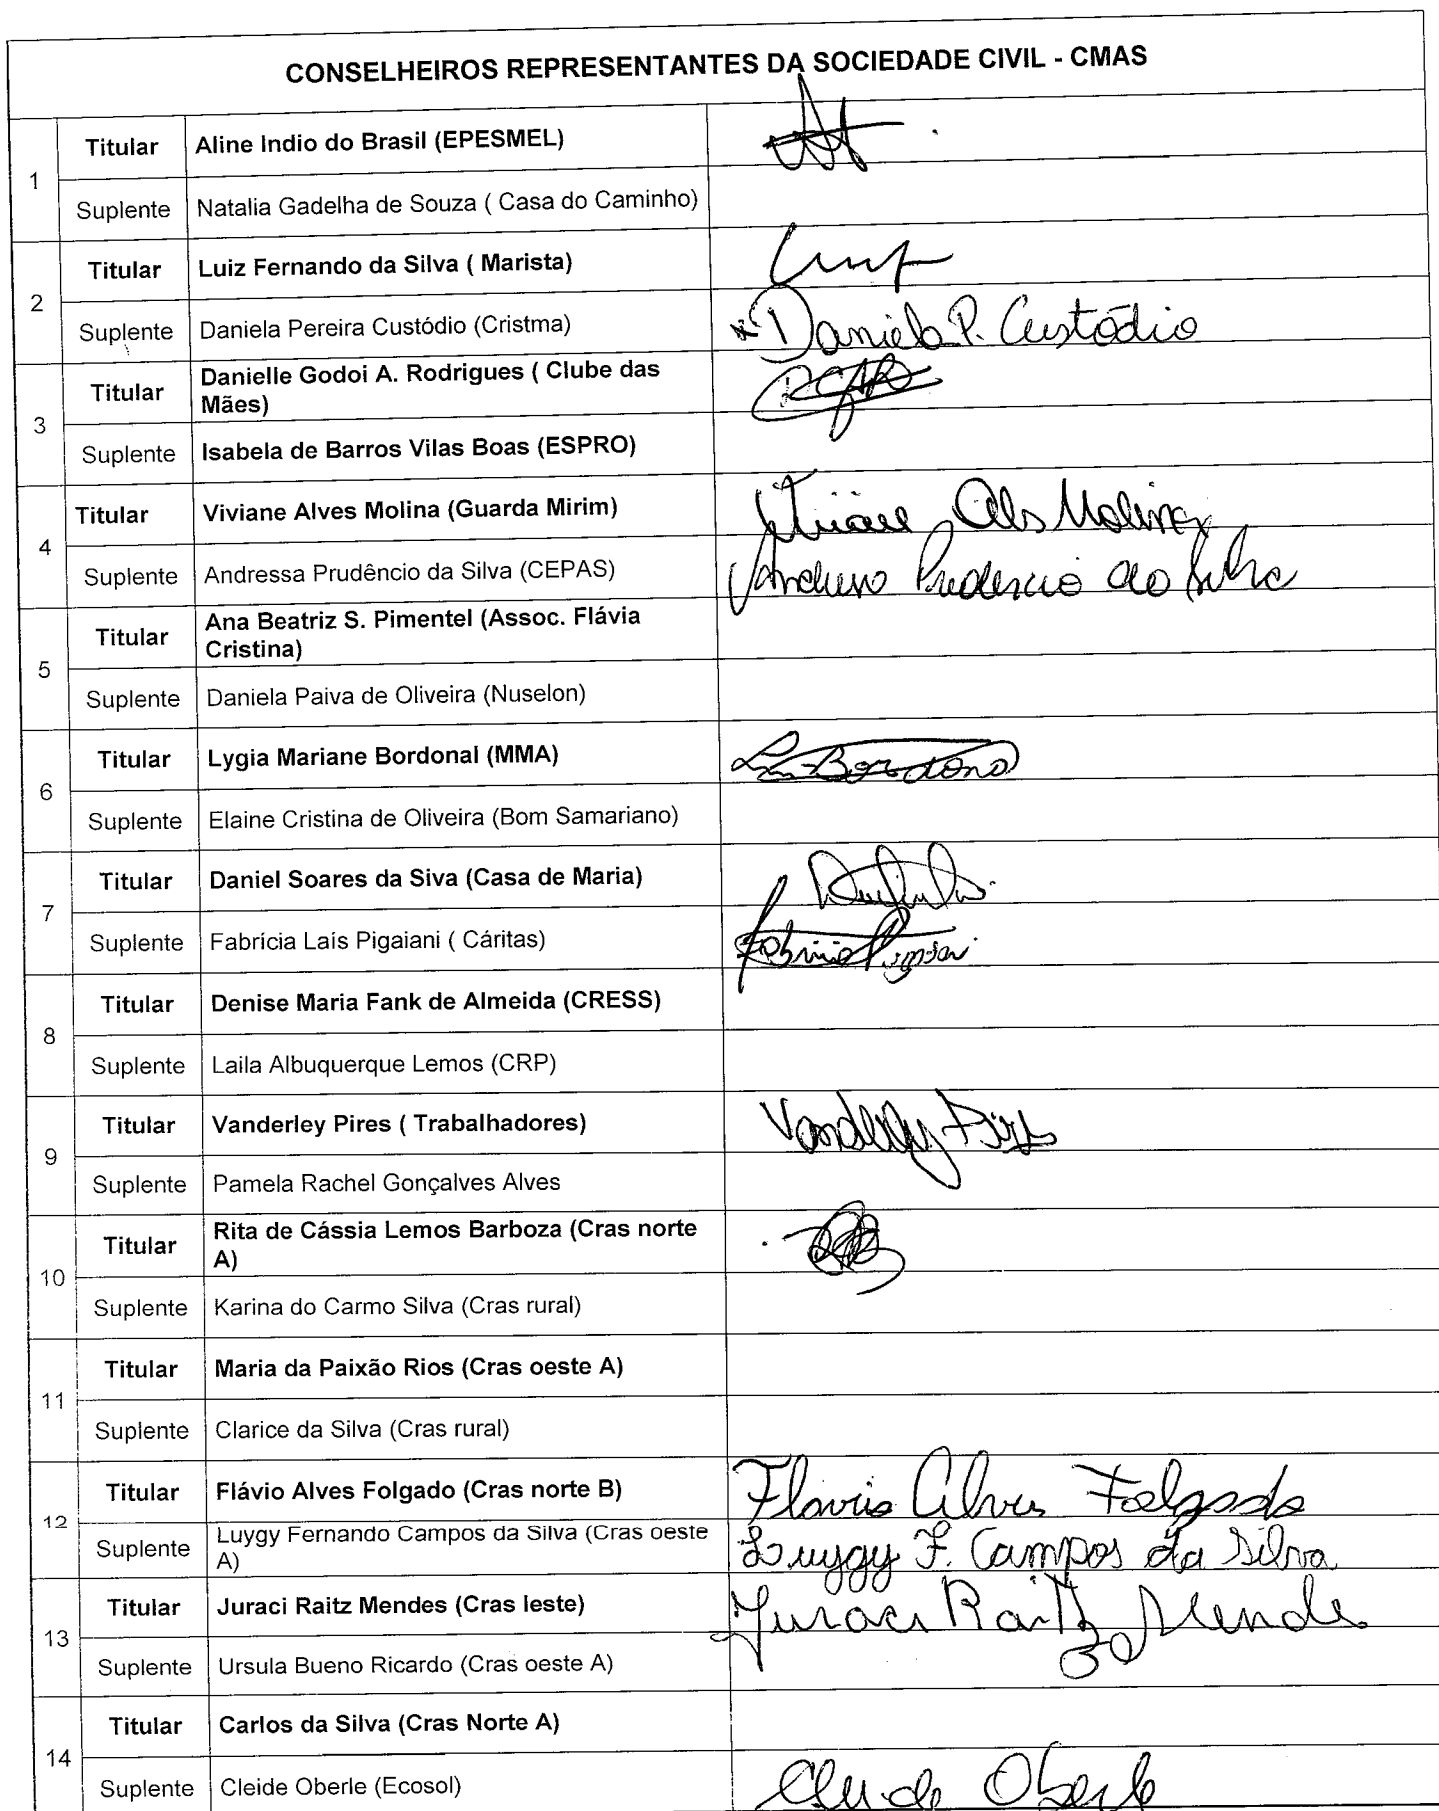 CONSELHEIROS REPRESENTANTES DA SOCIEDADE CIVIL - CMAS
1
Titular Aline Indio do Brasil (EPESMEL)
Suplente Natalia Gadelha de Souza ( Casa do Caminho)
2
Titular Luiz Fernando da Silva ( Marista)
Suplente Daniela Pereira Custódio (Cristma) Daniela P. Custódio
3
Titular Danielle Godoi A. Rodrigues ( Clube das
Mães)
Suplente Isabela de Barros Vilas Boas (ESPRO)
4
Titular Viviane Alves Molina (Guarda Mirim) Molina
Suplente Andressa Prudêncio da Silva (CEPAS) Prudencio da Silva
5
Titular Ana Beatriz S. Pimentel (Assoc. Flávia
Cristina)
Suplente Daniela Paiva de Oliveira (Nuselon)
6
Titular Lygia Mariane Bordonal (MMA)
Suplente Elaine Cristina de Oliveira (Bom Samariano)
7
Titular Daniel Soares da Siva (Casa de Maria)
Suplente Fabrícia Laís Pigaiani ( Cáritas)
8
Titular Denise Maria Fank de Almeida (CRESS)
Suplente Laila Albuquerque Lemos (CRP)
9
Titular Vanderley Pires ( Trabalhadores) Vanderley Pires
Suplente Pamela Rachel Gonçalves Alves
10
Titular Rita de Cássia Lemos Barboza (Cras norte
A)
Suplente Karina do Carmo Silva (Cras rural)
11
Titular Maria da Paixão Rios (Cras oeste A)
Suplente Clarice da Silva (Cras rural)
12
Titular Flávio Alves Folgado (Cras norte B) Flavio Alves Folgado
Suplente Luygy Fernando Campos da Silva (Cras oeste
A) Luygy F. Campos da Silva
13
Titular Juraci Raitz Mendes (Cras leste) Juraci Raitz Mendes
Suplente Ursula Bueno Ricardo (Cras oeste A)
14
Titular Carlos da Silva (Cras Norte A)
Suplente Cleide Oberle (Ecosol) Cleide Oberle